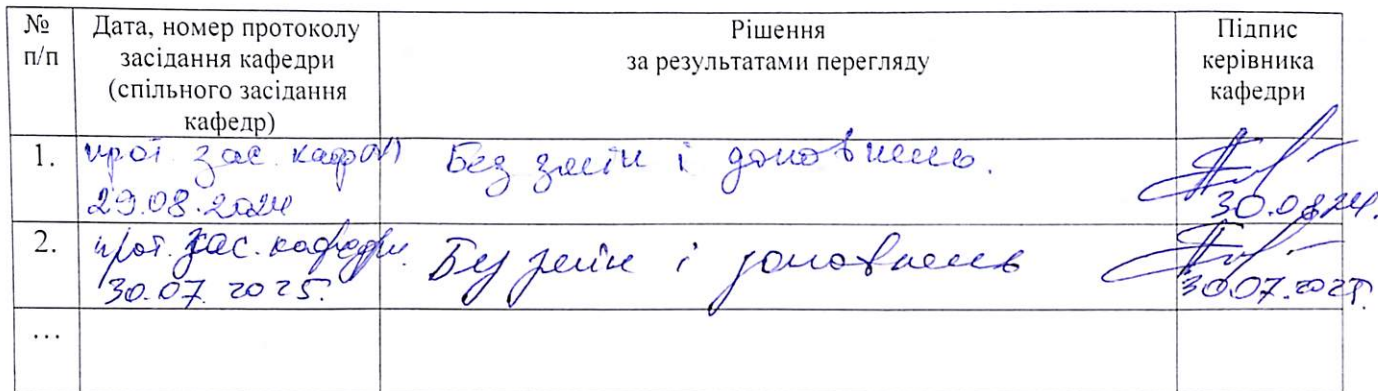 № п/п
Дата, номер протоколу засідання кафедри (спільного засідання кафедр)
Рішення за результатами перегляду
Підпис керівника кафедри
1.
прот. зас. каф
29.08.2024
Без змін і доповнень.
30.08.24.
2.
прот. зас. кафедри.
30.07.2025.
Без змін і доповнень
30.07.2025.
...